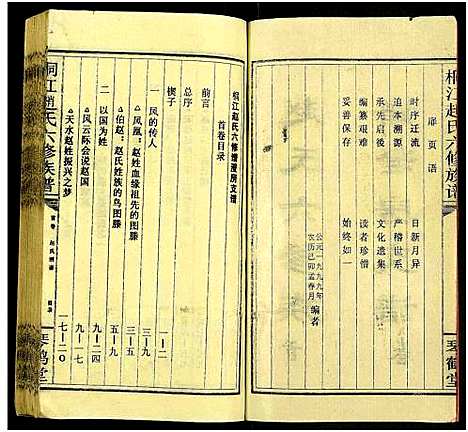 桐江赵氏六修族谱
琴鹤堂
扉页语
时序迁流 日新月异
追本溯源 严稽世系
承先启後 文化遗集
编纂艰难 读者珍惜
妥善保存 始终如一
公元一九九九年
农历己卯孟春月 编者
桐江赵氏六修谱 房支谱
首卷目录
总序
前言 一-二
楔子 三-九
一 凤的传人
△凤凰：赵姓血缘祖先的图腾 三-五
△伯赵：赵氏姓族的鸟图腾 五-九
二 以国为姓 九-二四
△风云际会说赵国 九-一七
△天水赵姓振兴之梦 一七-二〇
桐江赵氏六修族谱
首卷
目录
琴鹤堂